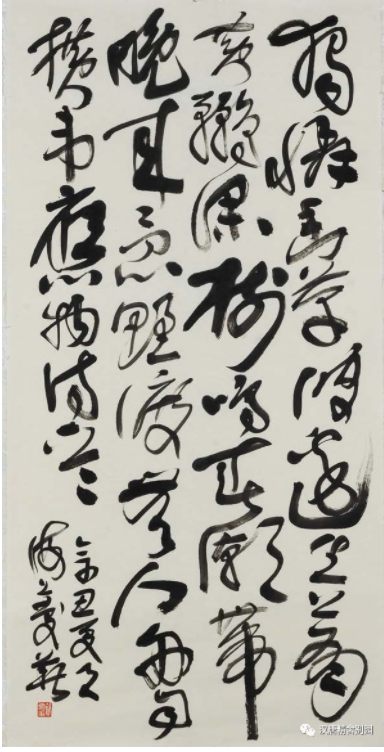 獨憐幽草澗邊生上有
黃鸝深樹鳴春潮帶雨
晚來急野渡無人舟自
橫韋應物詩
辛丑夏月